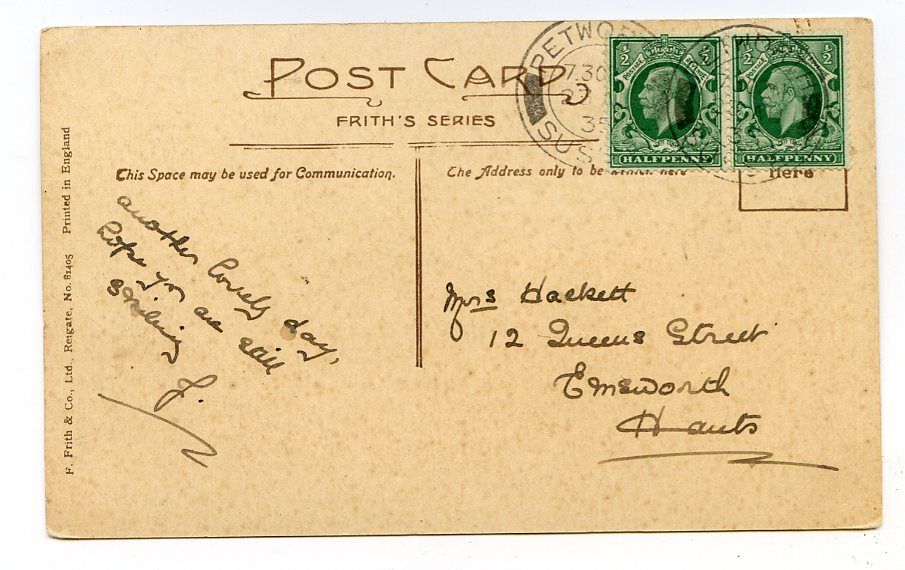 POST CARD
FRITH'S SERIES
This Space may be used for Communication.
The Address only to be
Here
PETWO
SUS
7.30
35
1/2 1/2
POSTAGE REVENUE
HALFPENNY
1/2 1/2
POSTAGE
HALFPENNY
another lovely day,
hope you are still
smiling
J.
Mrs Hackett
12 Queens Street
Emsworth
Hants
F. Frith & Co., Ltd., Reigate, No. 81405 Printed in England